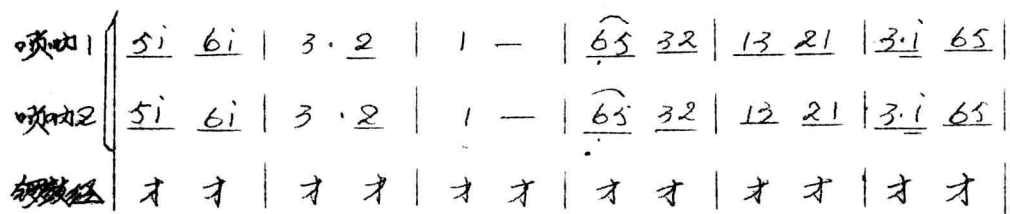 唢呐1 5i 6i | 3 · 2 | 1 — | 65 32 | 13 21 | 3·i 65 |
唢呐2 5i 6i | 3 · 2 | 1 — | 65 32 | 12 21 | 3·i 65 |
才 才 | 才 才 | 才 才 | 才 才 | 才 才 | 才 才 |